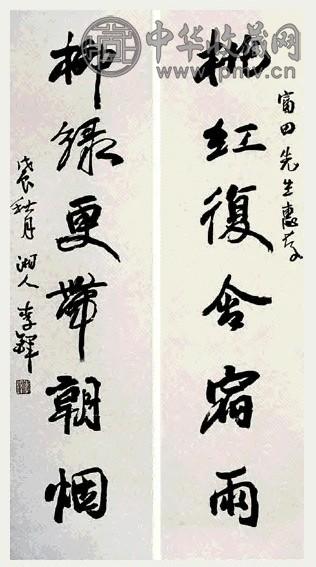 富田先生惠存
桃红復含宿雨
柳绿更带朝烟
戊辰秋月 湘人 李铎
中华收藏网
www.pmv.cn